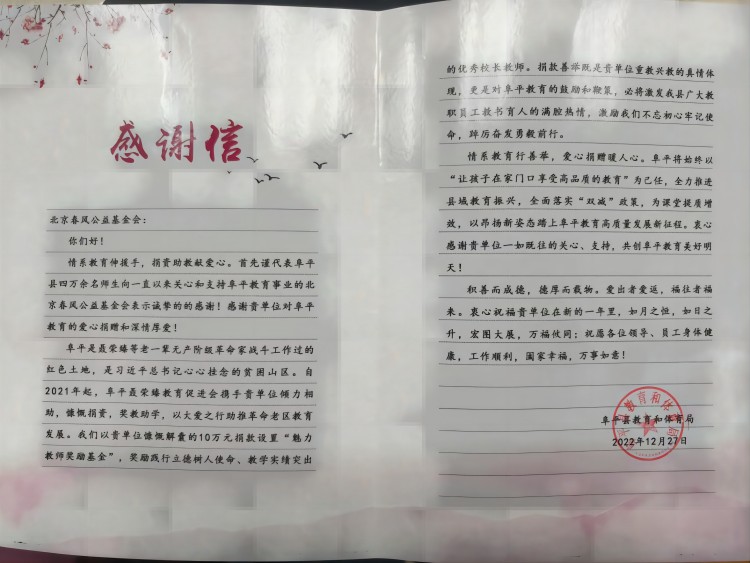 感谢信
北京春风公益基金会：
你们好！
情系教育伸援手，捐资助教献爱心。首先谨代表阜平
县四万余名师生向一直以来关心和支持阜平教育事业的北
京春风公益基金会表示诚挚的的感谢！感谢贵单位对阜平
教育的爱心捐赠和深情厚爱！
阜平是聂荣臻等老一辈无产阶级革命家战斗工作过的
红色土地，是习近平总书记心心挂念的贫困山区。自
2021年起，阜平聂荣臻教育促进会携手贵单位倾力相
助，慷慨捐资，奖教助学，以大爱之行动推革命老区教育
发展。我们以贵单位慷慨解囊的10万元捐款设置“魅力
教师奖励基金”，奖励践行立德树人使命、教学实绩突出
的优秀校长教师。捐款善举既是贵单位重教兴教的真情体
现，更是对阜平教育的鼓励和鞭策，必将激发我县广大教
职员工教书育人的满腔热情，激励我们不忘初心牢记使
命，踔厉奋发勇毅前行。
情系教育行善举，爱心捐赠暖人心。阜平将始终以
“让孩子在家门口享受高品质的教育”为己任，全力推进
县域教育振兴，全面落实“双减”政策，为课堂提质增
效，以昂扬新姿态踏上阜平教育高质量发展新征程。衷心
感谢贵单位一如既往的关心、支持，共创阜平教育美好明
天！
积善而成德，德厚而载物。爱出者爱返，福往者福
来。衷心祝福贵单位在新的一年里，如月之恒，如日之
升，宏图大展，万福攸同；祝愿各位领导、员工身体健
康，工作顺利，阖家幸福，万事如意！
阜平县教育和体育局
2022年12月27日